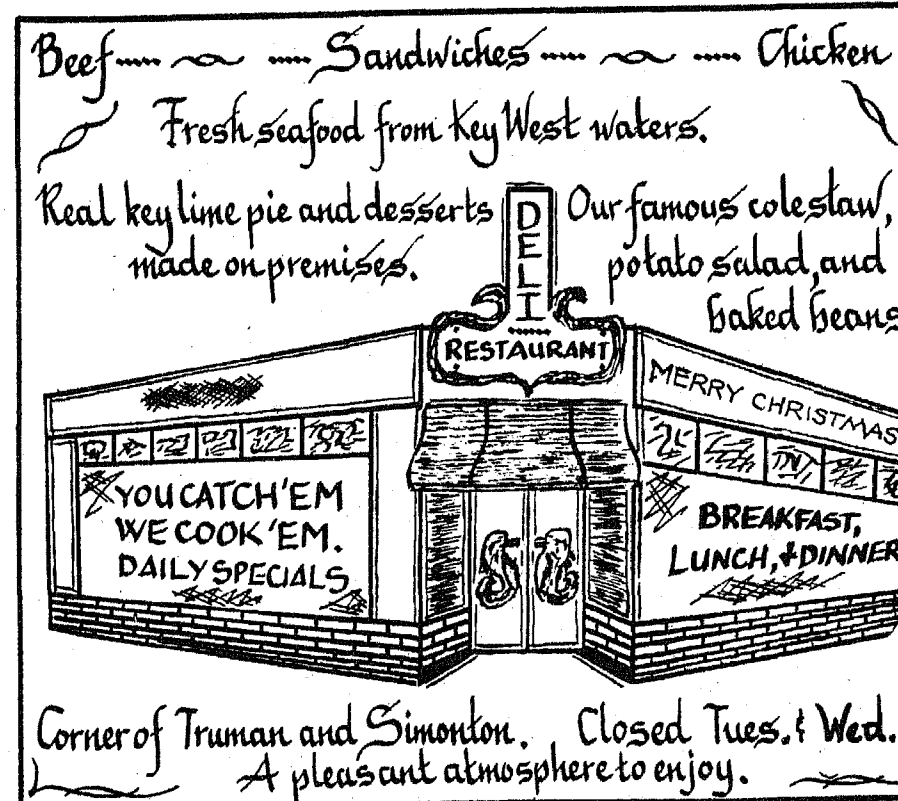 Beef Sandwiches Chicken
Fresh seafood from Key West waters.
Real key lime pie and desserts
made on premises.
Our famous coleslaw,
potato salad, and
baked beans
DELI
RESTAURANT
MERRY CHRISTMAS
YOU CATCH'EM
WE COOK'EM.
DAILY SPECIALS
BREAKFAST,
LUNCH, & DINNER
Corner of Truman and Simonton. Closed Tues. & Wed.
A pleasant atmosphere to enjoy.